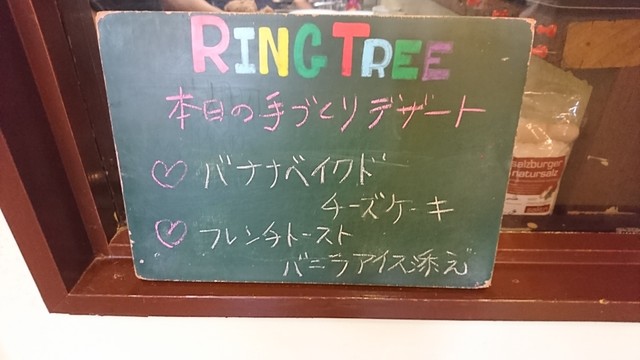 RING TREE
本日の手づくりデザート
♡ バナナベイクド
チーズケーキ
♡ フレンチトースト
バニラアイス添え
salzburger
natursalz